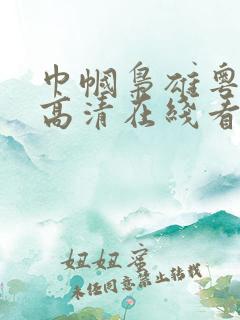 巾帼枭雄粤
高清在线看
妞妞蜜
未经同意禁止转载